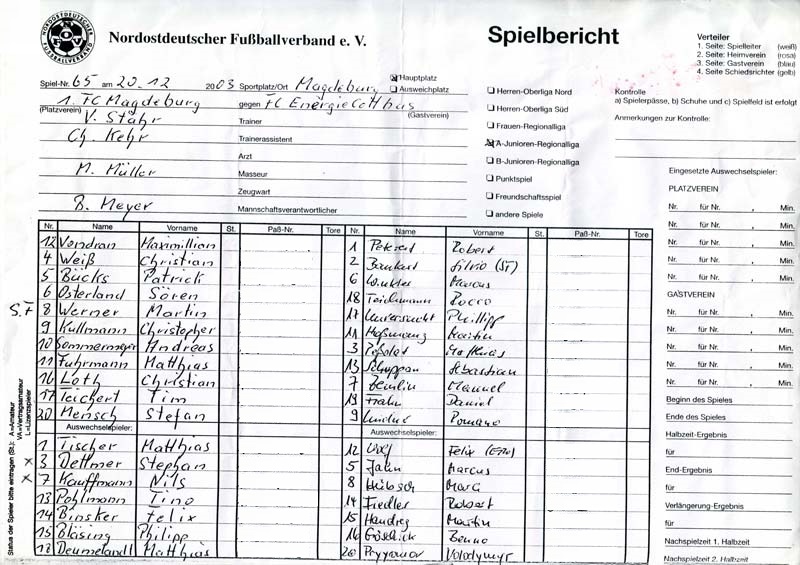 NORDOSTDEUTSCHER FUSSBALLVERBAND
Nordostdeutscher Fußballverband e. V.
Spielbericht
Verteiler
1. Seite: Spielleiter (weiß)
2. Seite: Heimverein (rosa)
3. Seite: Gastverein (blau)
4. Seite Schiedsrichter (gelb)
Spiel-Nr. 65 am 20.12 2003 Sportplatz/Ort Magdeburg
Hauptplatz
Ausweichplatz
1. FC Magdeburg gegen FC Energie Cottbus
(Platzverein) (Gastverein)
V. Stahr Trainer
Ch. Kehr Trainerassistent
Arzt
M. Müller Masseur
Zeugwart
B. Meyer Mannschaftsverantwortlicher
Herren-Oberliga Nord
Herren-Oberliga Süd
Frauen-Regionalliga
A-Junioren-Regionalliga
B-Junioren-Regionalliga
Punktspiel
Freundschaftsspiel
andere Spiele
Kontrolle
a) Spielerpässe, b) Schuhe und c) Spielfeld ist erfolgt
Anmerkungen zur Kontrolle:
Nr. Name Vorname St. Paß-Nr. Tore Nr. Name Vorname St. Paß-Nr. Tore
12 Vendran Maximillian 1 Robert
4 Weiß Christian 2 Silvio (ST)
5 Bücks Patrick 6 Winkler Marcus
6 Osterland Sören 18 Teichmann Rocco
S.F 8 Werner Martin 17 Unversucht Phillipp
9 Kullmann Christopher 11 Martin
10 Sommermeyer Andreas 3 Matthias
11 Fuhrmann Matthias 13 Schuppan Sebastian
16 Loth Christian 7 Benlin Manuel
17 Teichert Tim 19 Frahn Daniel
20 Mensch Stefan 9 Romano
Auswechselspieler: Auswechselspieler:
1 Tischer Matthias 12 Felix
x 3 Dettmer Stephan 5 Jahn Marcus
x 7 Kauffmann Nils 8 Hübsch Marc
13 Pohlmann Tino 14 Fiedler Robert
14 Binsker Felix 15 Handreg Martin
15 Bläsing Philipp 16 Benno
18 Deumelandt Matthias 20 Volodymyr
Status der Spieler bitte eintragen (St.): A=Amateur
VA=Vertragsamateur
L=Lizenzspieler
Eingesetzte Auswechselspieler:
PLATZVEREIN
Nr. für Nr. , Min.
Nr. für Nr. , Min.
Nr. für Nr. , Min.
Nr. für Nr. , Min.
Nr. für Nr. , Min.
GASTVEREIN
Nr. für Nr. , Min.
Nr. für Nr. , Min.
Nr. für Nr. , Min.
Nr. für Nr. , Min.
Nr. für Nr. , Min.
Beginn des Spieles
Ende des Spieles
Halbzeit-Ergebnis
für
End-Ergebnis
für
Verlängerung-Ergebnis
für
Nachspielzeit 1. Halbzeit
Nachspielzeit 2. Halbzeit